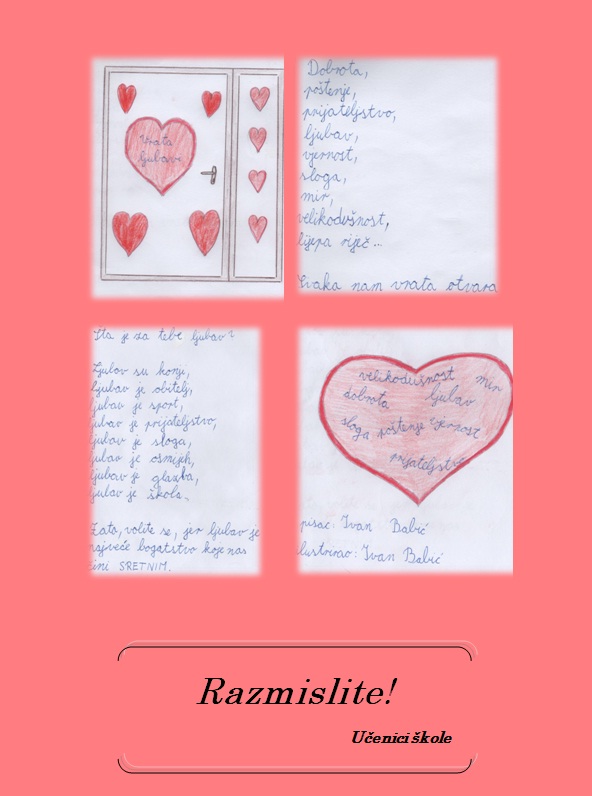 Vrata
ljubavi
Dobrota,
poštenje,
prijateljstvo,
ljubav,
vjernost,
sloga,
mir,
velikodušnost,
lijepa riječ...
Svaka nam vrata otvara
Šta je za tebe ljubav?
Ljubav su konji,
Ljubav je obitelj,
ljubav je sport,
ljubav je prijateljstvo,
ljubav je sloga,
ljubav je osmijeh,
ljubav je glazba,
ljubav je škola.
Zato, volite se, jer ljubav je
najveće bogatstvo koje nas
čini SRETNIM.
velikodušnost mir
dobrota ljubav
sloga poštenje vjernost
prijateljstvo
pisac: Ivan Babić
ilustrirao: Ivan Babić
Razmislite!
Učenici škole